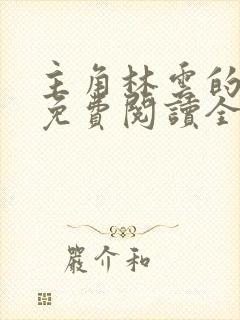 主角林雲的
免費閱讀全
嚴介和